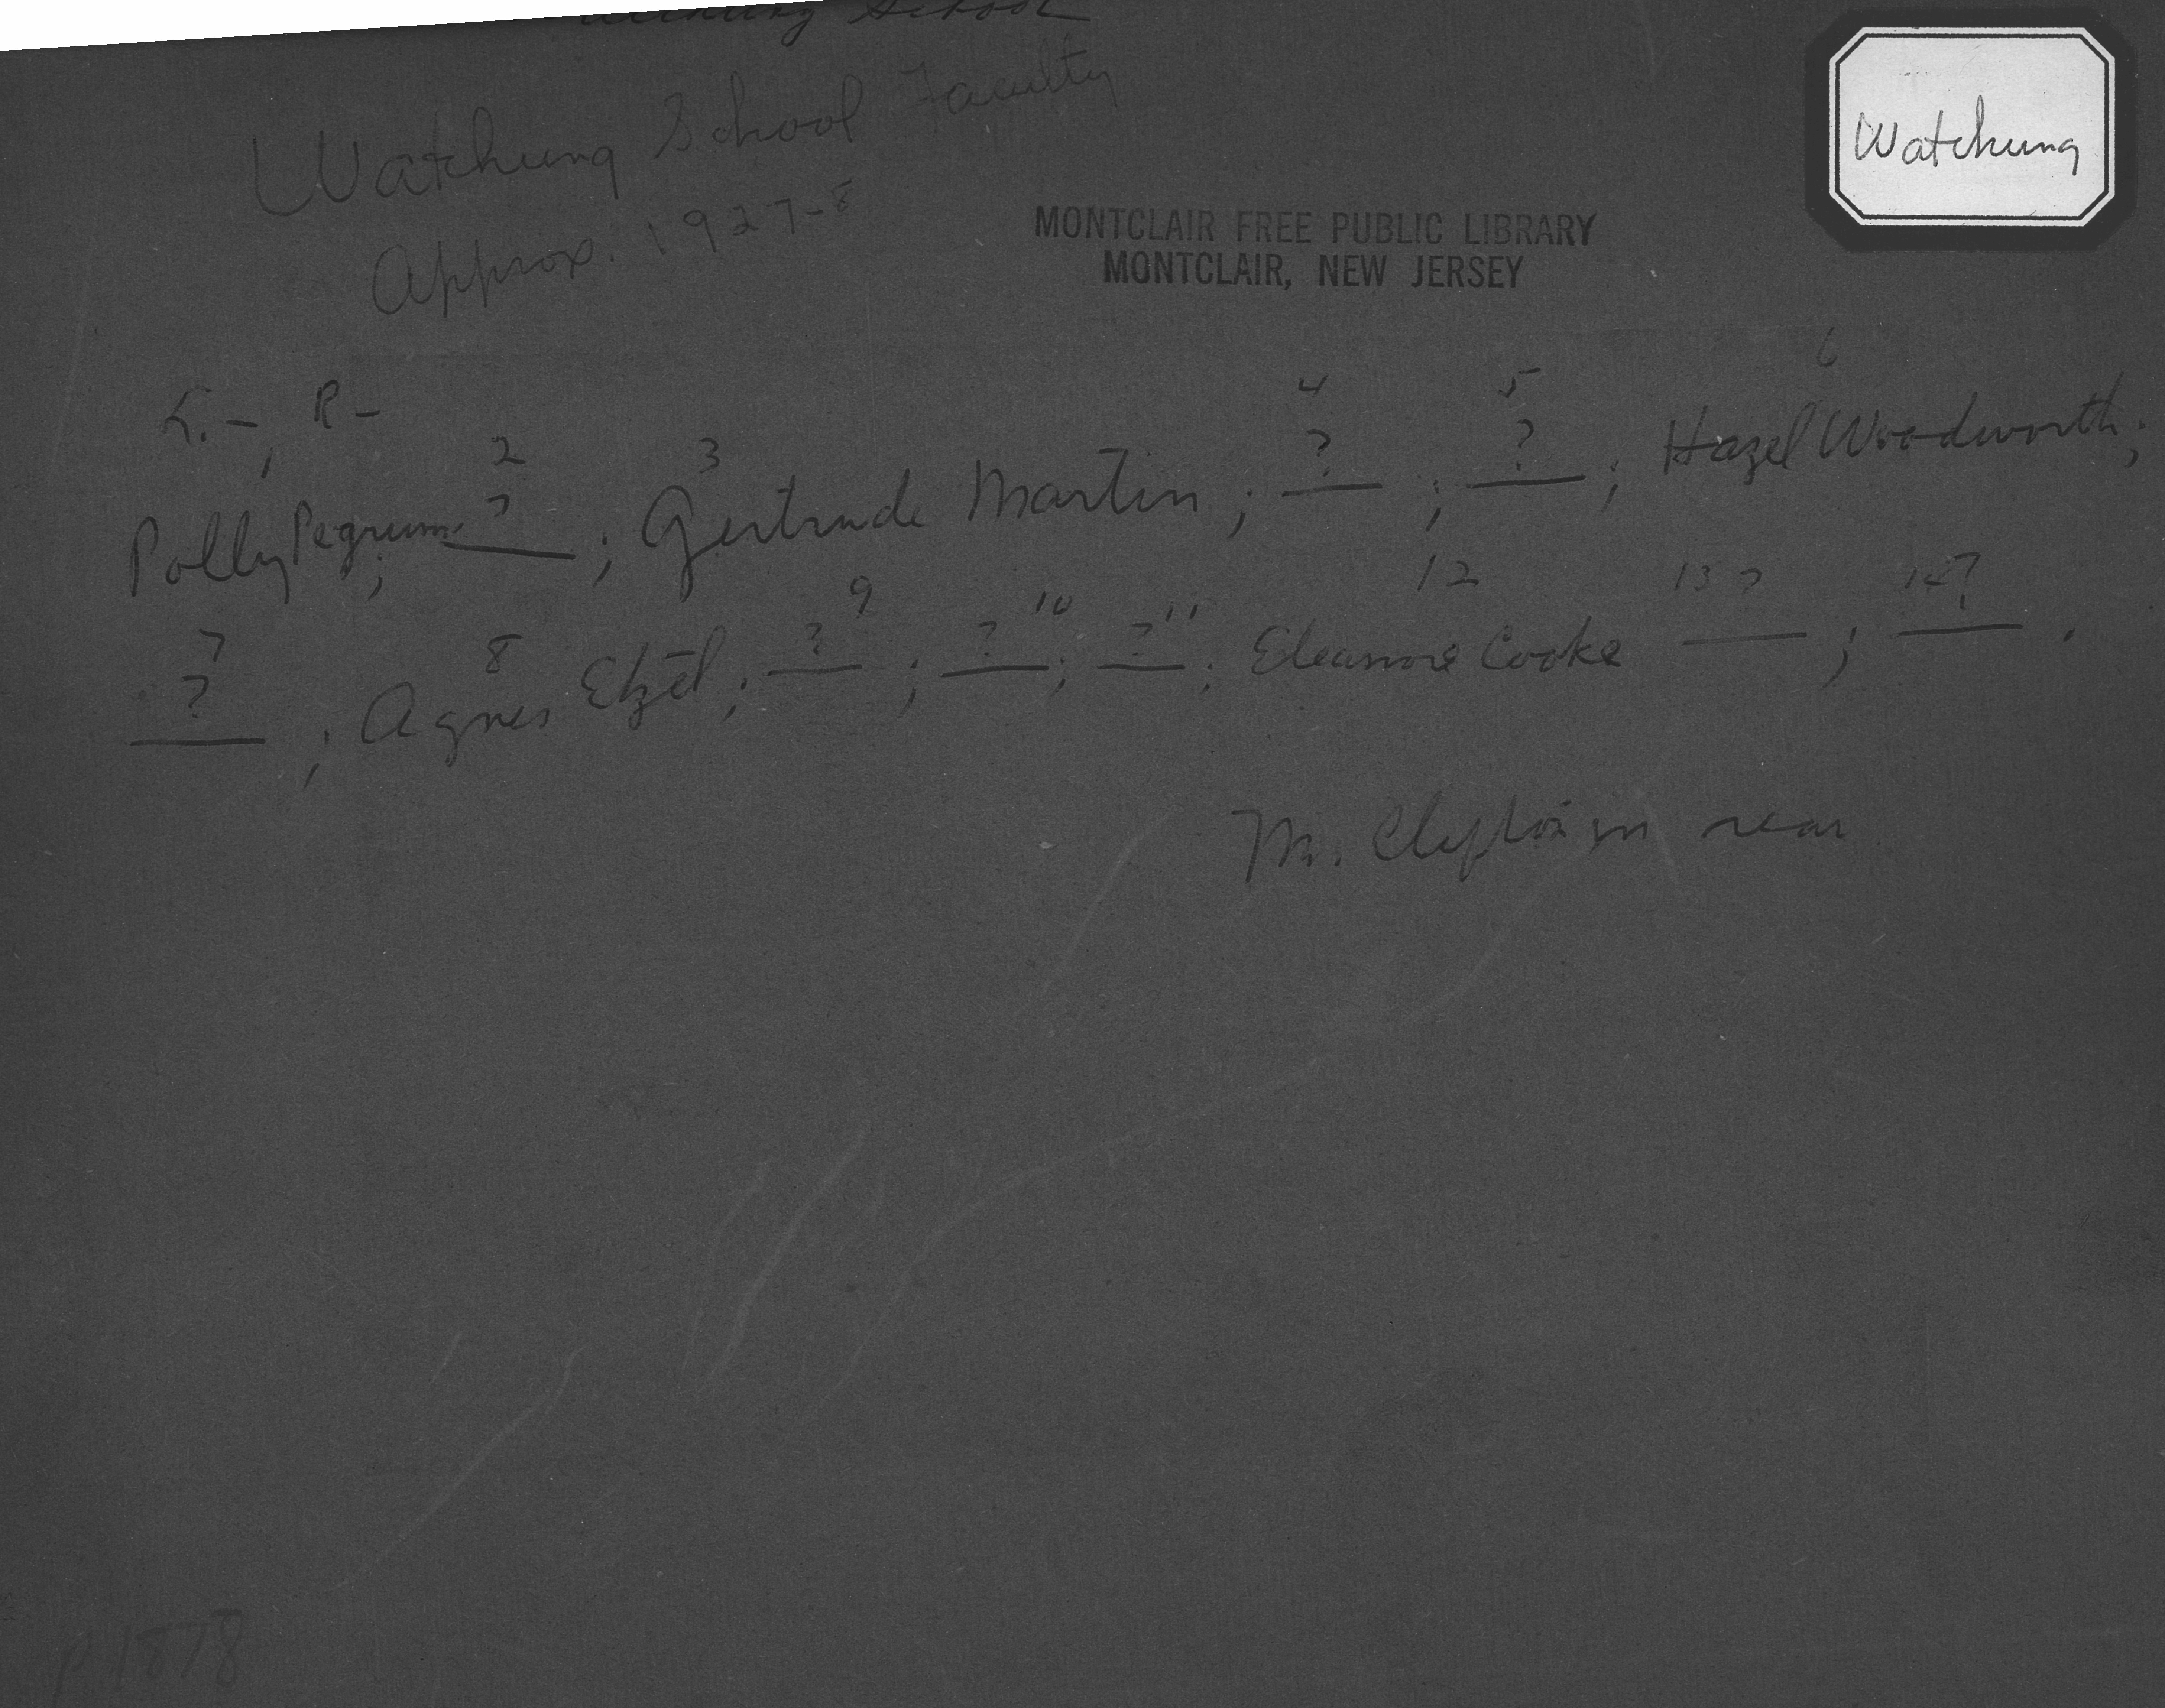 School
Watchung School Faculty
Watchung
Approx. 1927-8
MONTCLAIR FREE PUBLIC LIBRARY
MONTCLAIR, NEW JERSEY
L. -, R -
2 3 4 5 6
Polly Pegrum; ? ; Gertrude Martin; ? ; ? ; Hazel Woodworth;
7 8 9 10 11 12 13 ? 14 ?
? ; Agnes Etzel; ? ; ? ; ? ; Eleanore Cooke ; .
M. in rear
P 1878